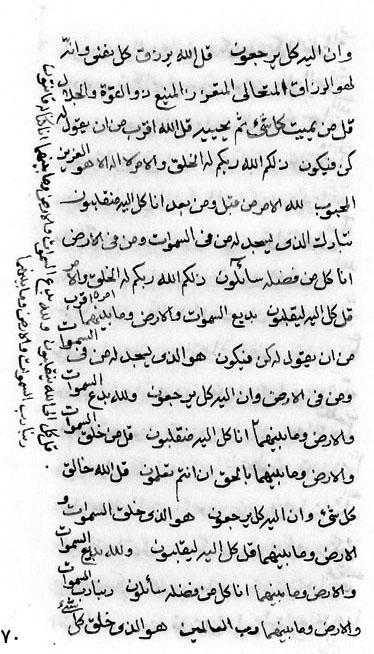 وان اليه كل يرجعون قل الله يرزق كل يغني وانه
لهو الرزاق المتعالي المنيع ذو القوة والجلال
قل من يميت كل شيء ثم يحييه قل الله اقرب من ان يقول له
كن فيكون ذلكم الله ربكم له الخلق والامر لا اله الا هو العزيز
المحبوب لله الامر من قبل ومن بعد انا كل اليه منقلبون
تبارك الذي يسجد له من في السموات ومن في الارض
انا كل من فضله سائلون ذلكم الله ربكم له الخلق والامر
قل كل اليه ليقلبون بديع السموات والارض وما بينهما امره اقرب
من ان يقول له كن فيكون هو الذي يسجد له من في السموات
ومن في الارض وان اليه كل يرجعون ولله بدع السموات
والارض وما بينهما انا كل اليه منقلبون قل من خلق السموات
والارض وما بينهما بالحق ان انتم تعلمون قل الله خالق
كل شيء وان اليه كل يرجعون هو الذي خلق السموات و
الارض وما بينهما قل كل اليه ليقلبون ولله بديع السموات
والارض وما بينهما انا كل من فضله سائلون ربنا رب السموات
والارض وما بينهما رب العالمين هو الذي خلق كل شيء
٧٠
ولله بدع السموات والارض وما بينهما انا كل له قانتون
قل كل الى الله ينقلبون
ربنا رب السموات والارض وما بينهما